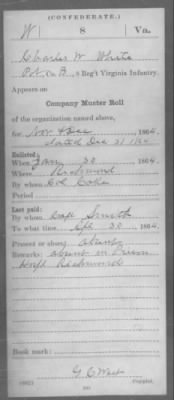 (CONFEDERATE.)
W 8 Va.
Charles W. White
Pvt, Co. B, 8 Reg't Virginia Infantry.
Appears on
Company Muster Roll
of the organization named above,
for Nov & Dec, 1864.
dated Dec 31 /64
Enlisted:
When Jany 30, 1864.
Where Richmond
By whom Col Coke
Period
Last paid:
By whom Capt Smith
To what time Sept 30, 1864.
Present or absent Absent
Remarks: absent in Prison
Hospl Richmond
Book mark:
G. C. West
(642) Copyist.